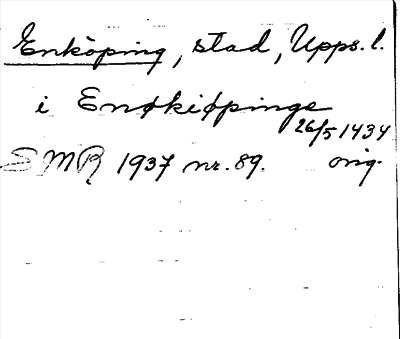 Enköping, stad, Upps. l.
i Enøkiøpinge
26/5 1434
SMR 1937 nr. 89. orig.